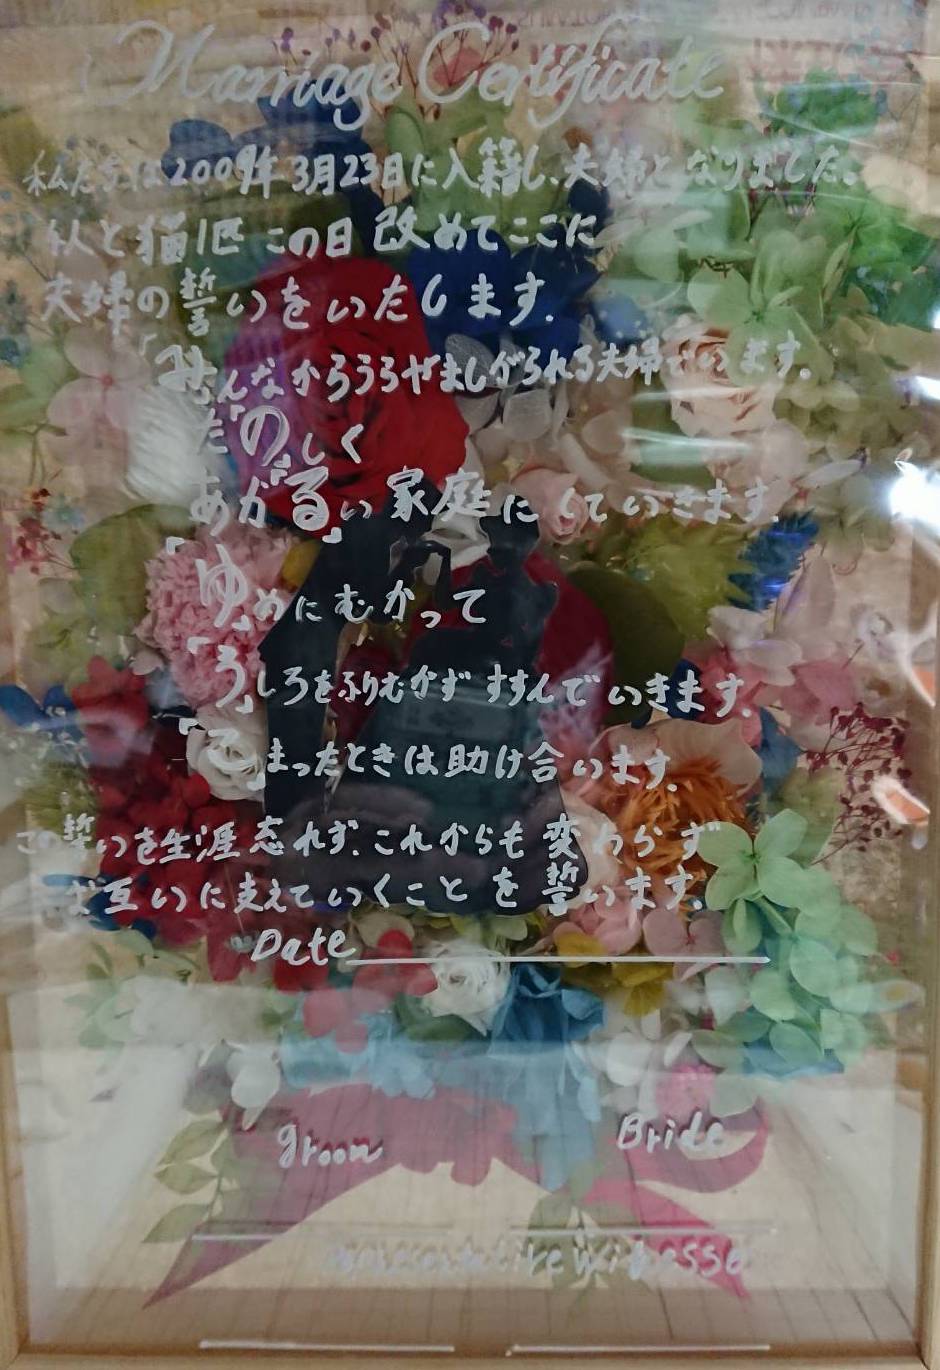 Marriage Certificate
私たちは2009年3月23日に入籍し、夫婦となりました。
人と猫1匹 この日 改めてここに
夫婦の誓いをいたします.
「み」んなからうらやましがられる夫婦でいます.
た「の」しく
あか「る」い家庭にしていきます.
「ゆ」めにむかって
「う」しろをふりむかずすすんでいきます.
「こ」まったときは助け合います.
この誓いを生涯忘れず.これからも変わらず
お互いに支えていくことを誓います.
Date
groom Bride